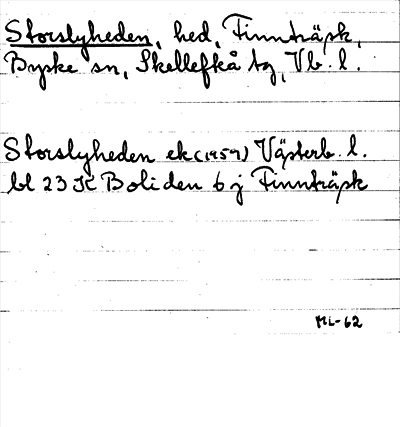 Storslyheden, hed, Finnträsk,
Byske sn, Skellefteå tg, Vb. l.
Storslyheden ek (1959) Västerb. l.
bl 23 K Boliden 6 j Finnträsk
ML-62